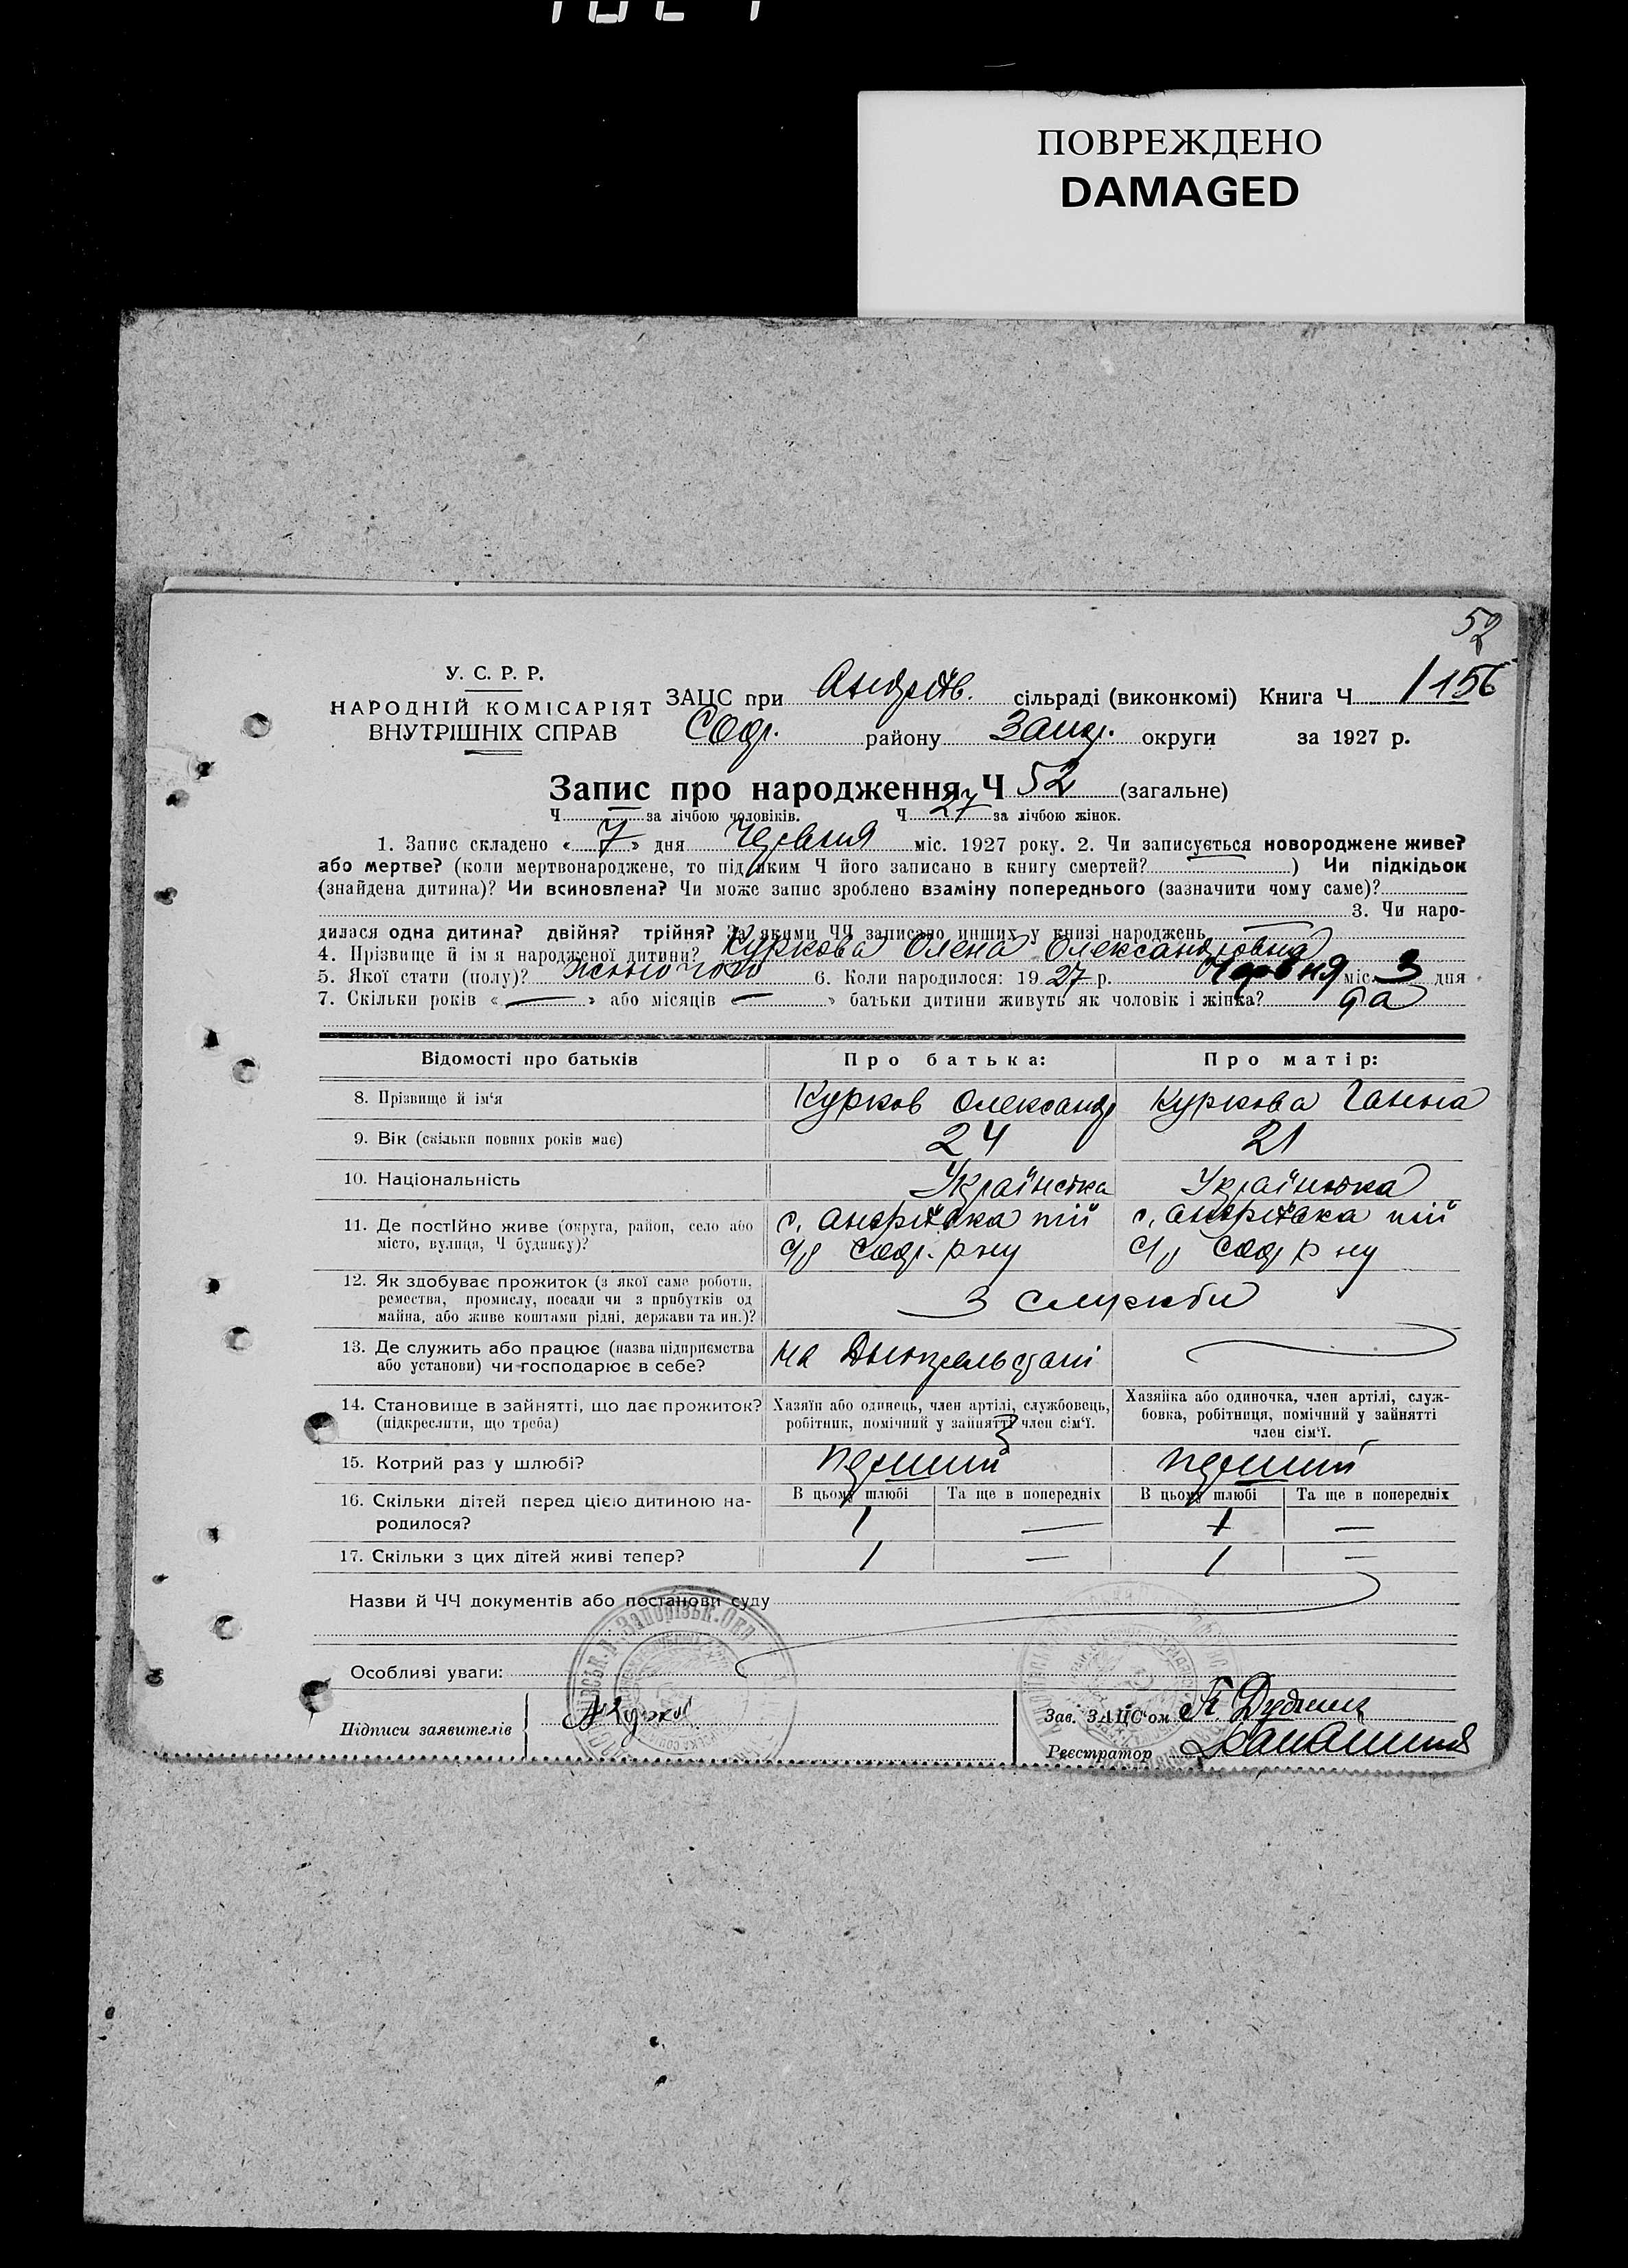 ПОВРЕЖДЕНО
DAMAGED
52
У. С. Р. Р.
НАРОДНІЙ КОМІСАРІЯТ
ВНУТРІШНІХ СПРАВ
ЗАЦС при Андріїв. сільраді (виконкомі) Книга Ч 1156
району Запор. округи за 1927 р.
Запис про народження Ч 52 (загальне)
Ч — за лічбою чоловіків. Ч 27 за лічбою жінок.
1. Запис складено « 7 » дня Червня міс. 1927 року. 2. Чи записується новороджене живе?
або мертве? (коли мертвонароджене, то під яким Ч його записано в книгу смертей? ) Чи підкідьок
(знайдена дитина)? Чи всиновлена? Чи може запис зроблено взаміну попереднього (зазначити чому саме)?
3. Чи наро-
дилася одна дитина? двійня? трійня? За якими ЧЧ записано инших у книзі народжень —
4. Прізвище й ім'я народженої дитини? Куркова Олена Олександровна
5. Якої стати (полу)? жіночого 6. Коли народилося: 1927 р. Червня міс. 3 дня
7. Скільки років « — » або місяців « — » батьки дитини живуть як чоловік і жінка? да
Відомості про батьків Про батька: Про матір:
8. Прізвище й ім'я Курков Олександр Куркова Ганна
9. Вік (скільки повних років має) 24 21
10. Національність Українська Українська
11. Де постійно живе (округа, район, село або с. Андріївка тій с. Андріївка тій
місто, вулиця, Ч будинку)? с/р рну с/р р ну
12. Як здобуває прожиток (з якої саме роботи,
ремества, промислу, посади чи з прибутків од З служби
майна, або живе коштами рідні, держави та ин.)?
13. Де служить або працює (назва підприємства на
або установи) чи господарює в себе?
14. Становище в зайнятті, що дає прожиток? Хазяїн або одинець, член артілі, службовець, Хазяйка або одиночка, член артілі, служ-
(підкреслити, що треба) робітник, помічний у зайнятті член сім'ї. бовка, робітниця, помічний у зайнятті
член сім'ї.
15. Котрий раз у шлюбі? перший перший
16. Скільки дітей перед цією дитиною на- В цьому шлюбі Та ще в попередніх В цьому шлюбі Та ще в попередніх
родилося? 1 — 1 —
17. Скільки з цих дітей живі тепер? 1 — 1 —
Назви й ЧЧ документів або постанови суду
Особливі уваги:
Підписи заявителів Зав. ЗАЦС'ом
Реєстратор